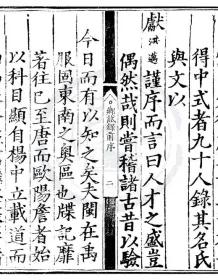 得中式者九十人錄其名氏
與文以
獻洪謹序而言曰人才之盛豈
偶然哉則嘗稽諸古昔以驗
鄉試錄前序 二
今日而有以知之矣夫閩在禹
服固東南之奧區也牒記靡
若往已至唐而歐陽詹者始
以科目顯自楊中立載道而